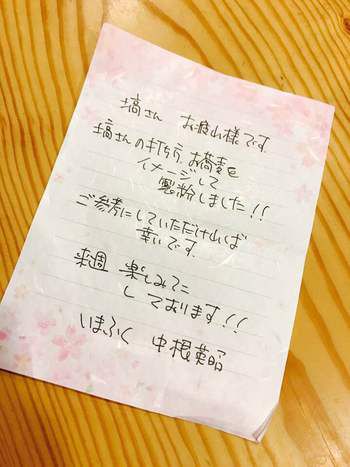 塙さん お疲れ様です
塙さんの打たうお蕎麦を
イメージして
製粉しました!!
ご参考にしていただければ
幸いです
来週 楽しみに
しております!!
いまふく 中根英昭